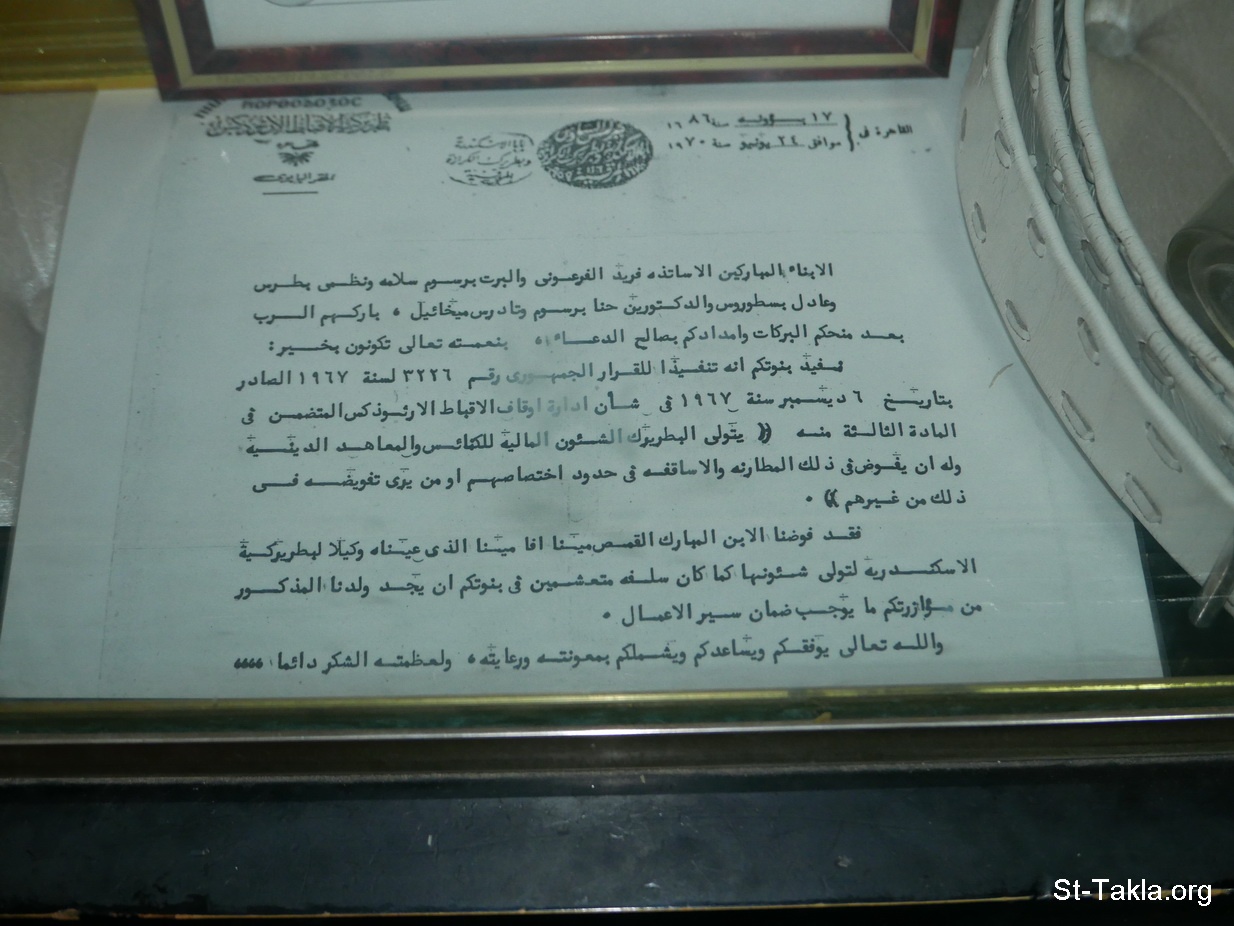 القاهرة فى { ١٧ بؤونه سنة ١٦٨٦
موافق ٢٤ يونيو سنة ١٩٧٠
بابا الاسكندرية
وبطريرك الكرازة
المرقسية
المقر البابوى
الابناء المباركين الاساتذه فريد الفرعونى والبرت برسوم سلامه ونظمى بطرس
وعادل بسطوروس والدكتورين حنا برسوم وتادرس ميخائيل ٠ باركهم الرب
بعد منحكم البركات وامدادكم بصالح الدعاء ٠ بنعمته تعالى تكونون بخير :
نفيد بنوتكم انه تنفيذا للقرار الجمهورى رقم ٣٢٢٦ لسنة ١٩٦٧ الصادر
بتاريخ ٦ ديسمبر سنة ١٩٦٧ فى شأن ادارة اوقاف الاقباط الارثوذكس المتضمن فى
المادة الثالثة منه (( يتولى البطريرك الشئون المالية للكنائس والمعاهد الدينية
وله ان يفوض فى ذلك المطارنه والاساقفه فى حدود اختصاصهم او من يرى تفويضه فى
ذلك من غيرهم )) ٠
فقد فوضنا الابن المبارك القمص مينا افا مينا الذى عيناه وكيلا لبطريركية
الاسكندرية لتولى شئونها كما كان سلفه متعشمين فى بنوتكم ان يجد ولدنا المذكور
من مؤازرتكم ما يوجب ضمان سير الاعمال ٠
والله تعالى يوفقكم ويساعدكم ويشملكم بمعونته ورعايته ٠ ولعظمته الشكر دائما ٠٠٠٠
St-Takla.org